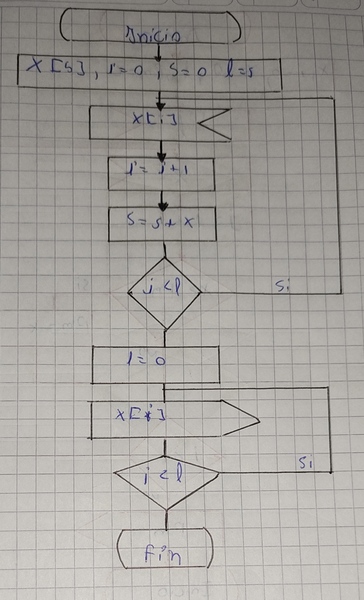 Inicio
X[5], i=0, S=0 l=5
X[i]
i=i+1
S=S+X
i<l
Si
i=0
X[i]
i<l
Si
Fin